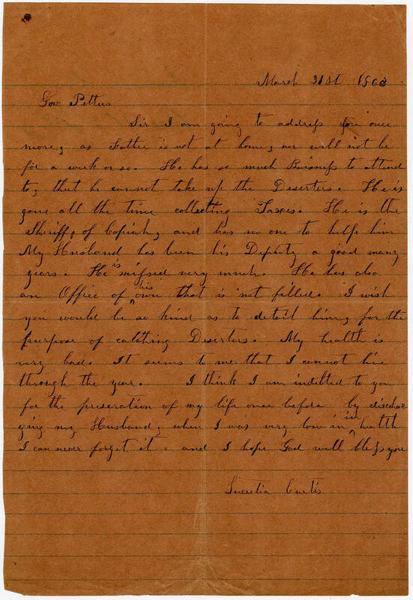 March 31st 1863
Gov. Pettus
Sir I am going to address you once
more, as Father is not at home, nor will not be
for a week or so. He has so much Buisness to attend
to, that he cannot take up the Deserters. He is
gone all the time collecting Taxes. He is the
Sheriff of Copiah, and has no one to help him
My Husband has been his Deputy a good many
years. He is missed very much. He has also
an Office of his own that is not filled. I wish
you would be so kind as to detail him, for the
purpose of catching Deserters. My health is
very bad. It seems to me that I cannot live
through the year. I think I am indebted to you
for the preseration of my life once before by dischar
ging my Husband, when I was very low in health
I can never forget it, and I hope God will bless you
Lucretia Curtis